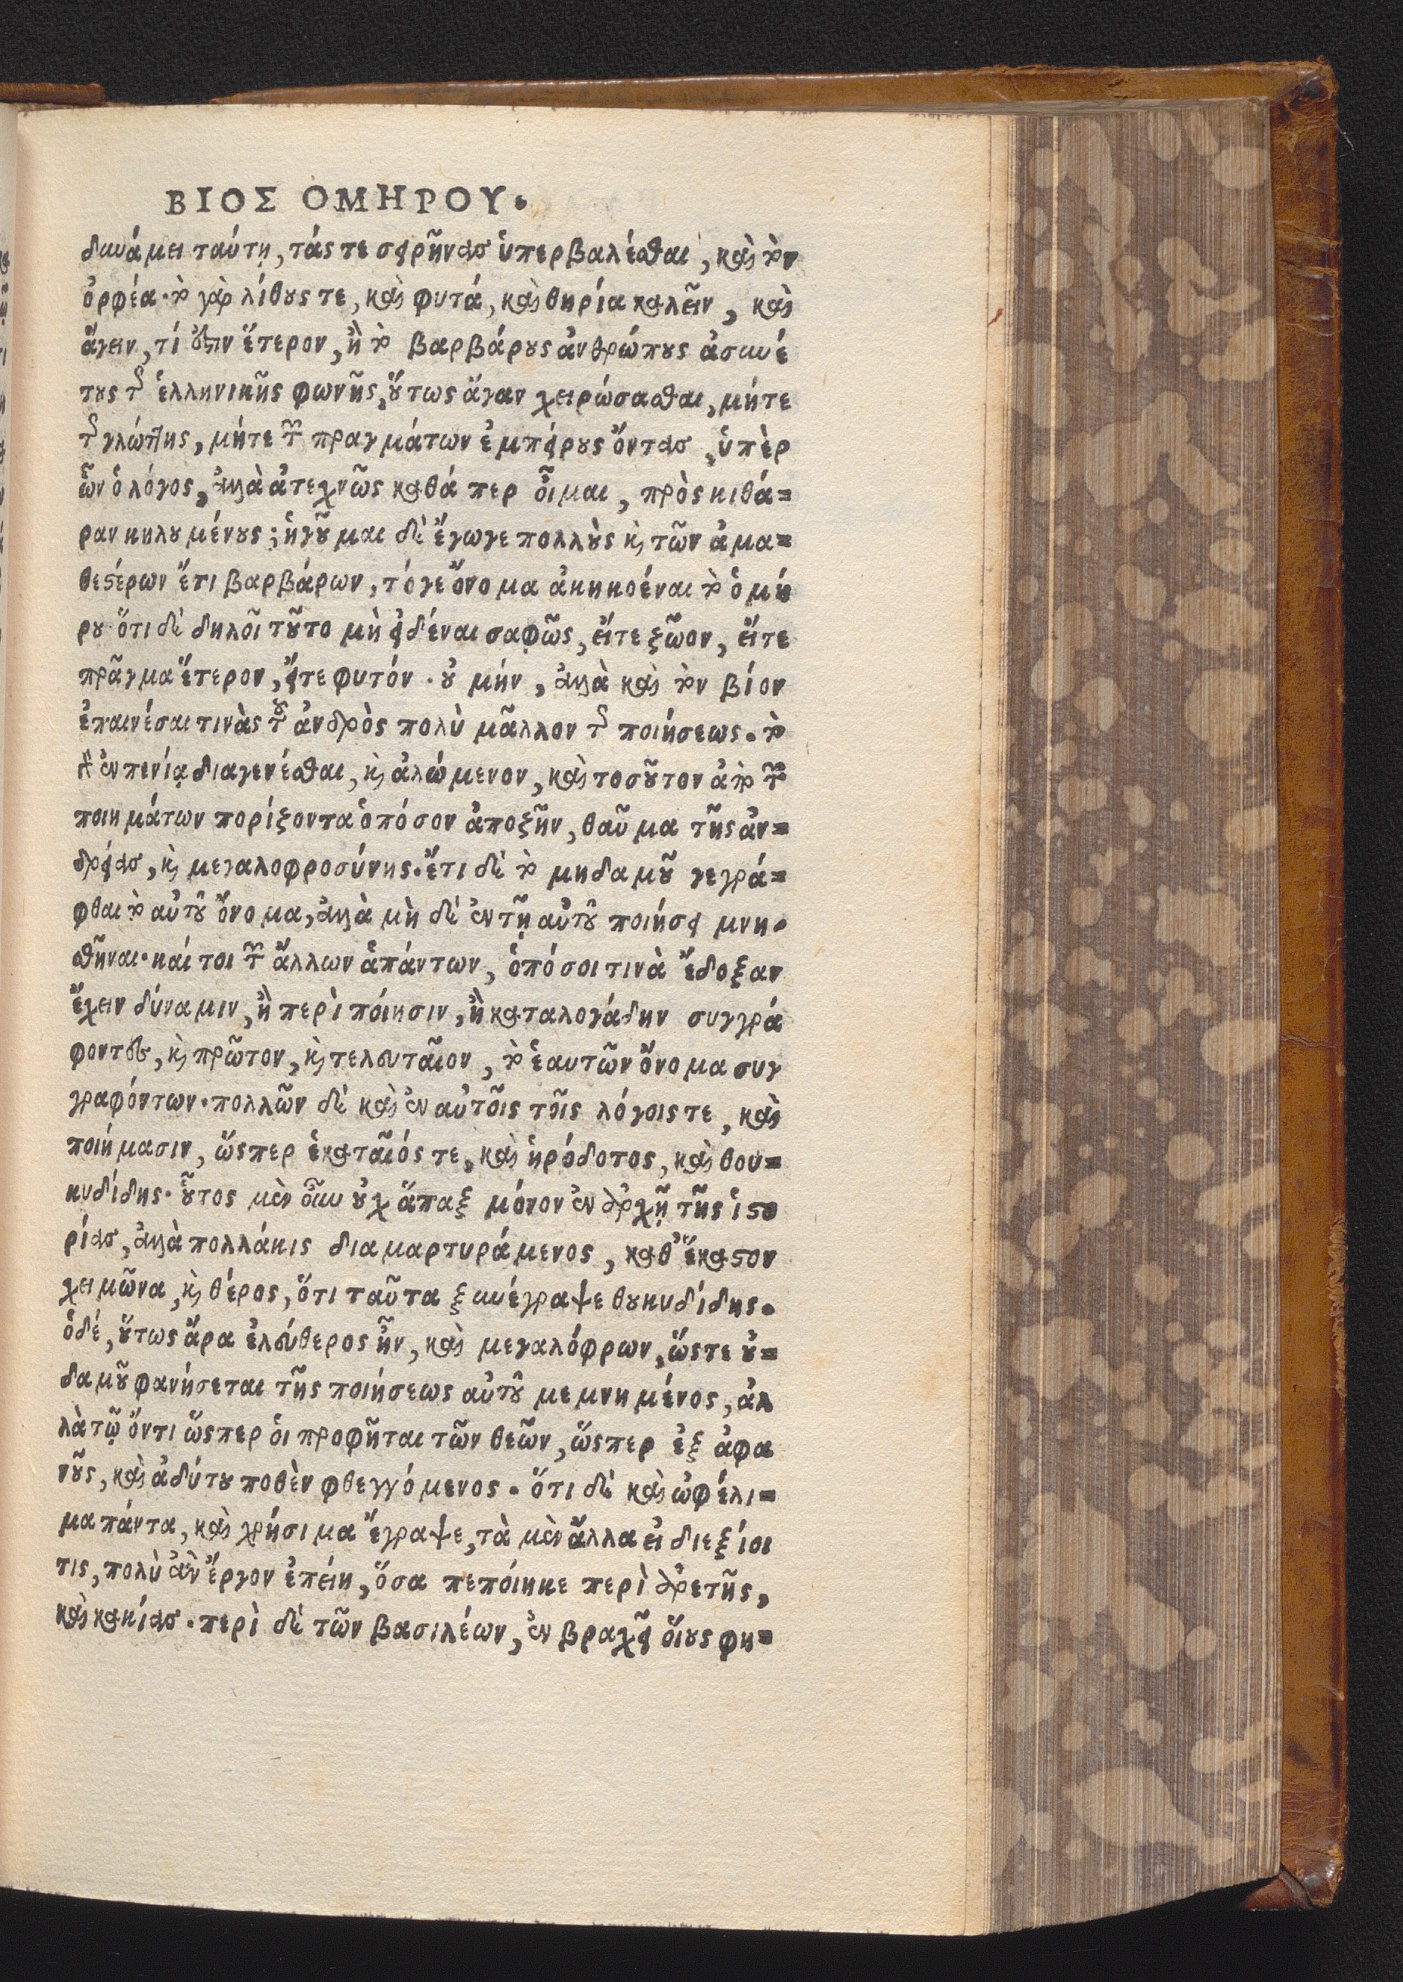 ΒΙΟΣ ΟΜΗΡΟΥ.
δυνάμει ταύτῃ, τάς τε σειρῆνας ὑπερβαλέσθαι, καὶ τὸν
ὀρφέα. τὸ γὰρ λίθους τε, καὶ φυτά, καὶ θηρία καλεῖν, καὶ
ἄγειν, τί ἐστιν ἕτερον, ἢ τὸ βαρβάρους ἀνθρώπους ἀσυνέ
τους τῆς ἑλληνικῆς φωνῆς, οὕτως ἄγαν χειρώσασθαι, μήτε
τῆς γλώττης, μήτε τῶν πραγμάτων ἐμπείρους ὄντας, ὑπὲρ
ὧν ὁ λόγος, ἀλλὰ ἀτεχνῶς καθά περ οἶμαι, πρὸς κιθά=
ραν κηλουμένους; ἡγοῦμαι δὲ ἔγωγε πολλοὺς καὶ τῶν ἀμα=
θεστέρων ἔτι βαρβάρων, τό γε ὄνομα ἀκηκοέναι τὸ ὁμή
ρου ὅτι δὲ δηλοῖ τοῦτο μὴ εἰδέναι σαφῶς, εἴτε ζῶον, εἴτε
πρᾶγμα ἕτερον, εἴτε φυτόν. οὐ μήν, ἀλλὰ καὶ τὸν βίον
ἐπαινέσαι τινὰς τοῦ ἀνδρὸς πολὺ μᾶλλον τῆς ποιήσεως. τὸ
γὰρ ἐν πενίᾳ διαγενέσθαι, καὶ ἀλώμενον, καὶ τοσοῦτον ἀπὸ τῶν
ποιημάτων πορίζοντα ὁπόσον ἀποζῆν, θαῦμα τῆς ἀν=
δρείας, καὶ μεγαλοφροσύνης. ἔτι δὲ τὸ μηδαμοῦ γεγρά=
φθαι τὸ αὐτοῦ ὄνομα, ἀλλὰ μὴ δὲ ἐν τῇ αὐτοῦ ποιήσει μνη.
σθῆναι. καίτοι τῶν ἄλλων ἁπάντων, ὁπόσοι τινὰ ἔδοξαν
ἔχειν δύναμιν, ἢ περὶ ποίησιν, ἢ καταλογάδην συγγρά
φοντες, καὶ πρῶτον, καὶ τελευταῖον, τὸ ἑαυτῶν ὄνομα συγ
γραφόντων. πολλῶν δὲ καὶ ἐν αὐτοῖς τοῖς λόγοις τε, καὶ
ποιήμασιν, ὥσπερ ἑκαταῖός τε, καὶ ἡρόδοτος, καὶ θου=
κυδίδης. οὗτος μὲν οὖν οὐχ ἅπαξ μόνον ἐν ἀρχῇ τῆς ἱστο
ρίας, ἀλλὰ πολλάκις διαμαρτυράμενος, καθ᾽ ἕκαστον
χειμῶνα, καὶ θέρος, ὅτι ταῦτα ξυνέγραψε θουκυδίδης.
ὁδέ, οὕτως ἄρα ἐλεύθερος ἦν, καὶ μεγαλόφρων, ὥστε οὐ=
δαμοῦ φανήσεται τῆς ποιήσεως αὐτοῦ μεμνημένος, ἀλ
λὰ τῷ ὄντι ὥσπερ ὁι προφῆται τῶν θεῶν, ὥσπερ ἐξ ἀφα
νοῦς, καὶ ἀδύτου ποθὲν φθεγγόμενος. ὅτι δὲ καὶ ὠφέλι=
μα πάντα, καὶ χρήσιμα ἔγραψε, τὰ μὲν ἄλλα εἰ διεξίοι
τις, πολὺ ἂν ἔργον ἐπείη, ὅσα πεποίηκε περὶ ἀρετῆς,
καὶ κακίας. περὶ δὲ τῶν βασιλέων, ἐν βραχεῖ ὅιους φη=